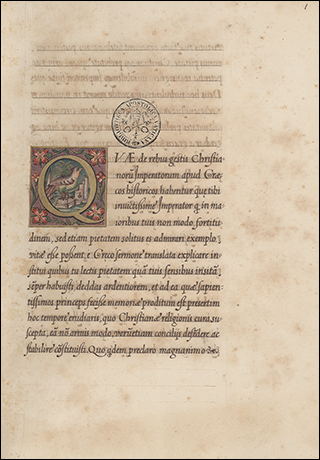 1
BIBLIOTHECA APOSTOLICA VATICANA
QVAE de rebus gestis Christia-
norũ Imperatorum apud Græ-
cos historicos habentur que tibi
inuictissime Imperator q̃ in ma-
ioribus tuis non modo fortitu
dinem, sed etiam pietatem solitus es admirari exemplo
vitæ esse possent, e Greco sermone translata explicare in
stitui quibus tu lectis pietatem quã tuis sensibus insitã
sẽper habuisti deddas ardentiorem, et ad ea quæ sapien
tissimos principes fecisse memoriæ proditum est presertim
hoc tempore erudiaris, quo Christianæ religionis cura sus
cepta, eã nõ armis modo, verũetiam concilijs defẽdere ac
stabilire cõstituisti. Quo qdem preclaro magnanimo